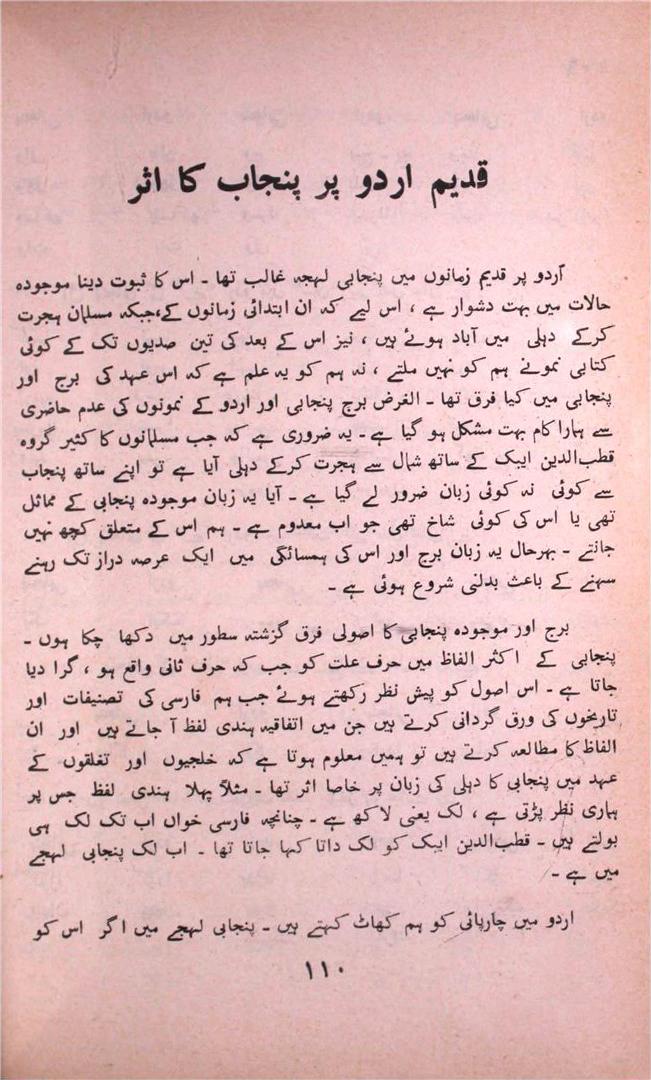 قدیم اردو پر پنجاب کا اثر
اُردو پر قدیم زمانوں میں پنجابی لہجہ غالب تھا ۔ اس کا ثبوت دینا موجودہ
حالات میں بہت دشوار ہے ، اس لیے کہ ان ابتدائی زمانوں کے،جبکہ مسلمان ہجرت
کرکے دہلی میں آباد ہوئے ہیں ، نیز اس کے بعد کی تین صدیوں تک کے کوئی
کتابی نمونے ہم کو نہیں ملتے ، نہ ہم کو یہ علم ہے کہ اس عہد کی برج اور
پنجابی میں کیا فرق تھا ۔ الغرض برج پنجابی اور اردو کے نمونوں کی عدم حاضری
سے ہمارا کام بہت مشکل ہو گیا ہے ۔ یہ ضروری ہے کہ جب مسلمانوں کا کثیر گروہ
قطب‌الدین ایبک کے ساتھ شمال سے ہجرت کرکے دہلی آیا ہے تو اپنے ساتھ پنجاب
سے کوئی نہ کوئی زبان ضرور لے گیا ہے ۔ آیا یہ زبان موجودہ پنجابی کے مماثل
تھی یا اس کی کوئی شاخ تھی جو اب معدوم ہے ۔ ہم اس کے متعلق کچھ نہیں
جانتے ۔ بہرحال یہ زبان برج اور اس کی ہمسائگی میں ایک عرصہ دراز تک رہنے
سہنے کے باعث بدلنی شروع ہوئی ہے ۔
برج اور موجودہ پنجابی کا اصولی فرق گزشتہ سطور میں دکھا چکا ہوں ۔
پنجابی کے اکثر الفاظ میں حرف علت کو جب کہ حرف ثانی واقع ہو ، گرا دیا
جاتا ہے ۔ اس اصول کو پیش نظر رکھتے ہوئے جب ہم فارسی کی تصنیفات اور
تاریخوں کی ورق گردانی کرتے ہیں جن میں اتفاقیہ ہندی لفظ آ جاتے ہیں اور ان
الفاظ کا مطالعہ کرتے ہیں تو ہمیں معلوم ہوتا ہے کہ خلجیوں اور تغلقوں کے
عہد میں پنجابی کا دہلی کی زبان پر خاصا اثر تھا ۔ مثلاً پہلا ہندی لفظ جس پر
ہماری نظر پڑتی ہے ، لک یعنی لاکھ ہے ۔ چنانچہ فارسی خواں اب تک لک ہی
بولتے ہیں ۔ قطب‌الدین ایبک کو لک داتا کہا جاتا تھا ۔ اب لک پنجابی لہجے
میں ہے ۔
اردو میں چارپائی کو ہم کھاٹ کہتے ہیں ۔ پنجابی لہجے میں اگر اس کو
۱۱۰